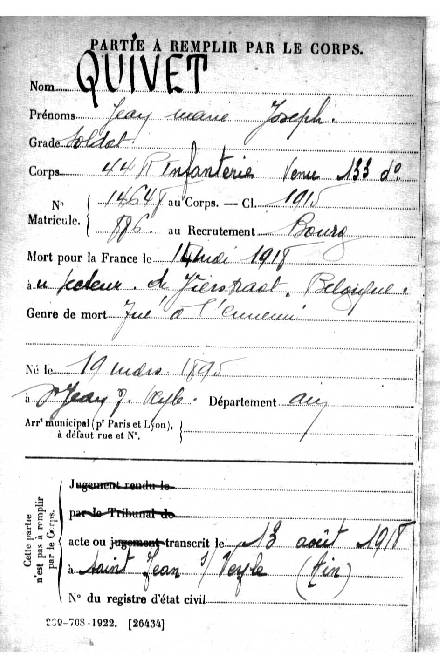 PARTIE À REMPLIR PAR LE CORPS.
Nom QUIVET
Prénoms Jean marie Joseph.
Grade Soldat
Corps 44 R Infanterie Venu 133 do
N° Matricule. { 14648 au Corps. — Cl. 1915
886. au Recrutement Bourg
Mort pour la France le 14 mai 1918
à u secteur. de Vierstraat. Belgique.
Genre de mort Tué à l'ennemi
Né le 19 mars 1895
à St Jean s. Veyle. Département Ain
Arrt municipal (pr Paris et Lyon), à défaut rue et N°. {
Cette partie n'est pas à remplir par le Corps.
Jugement rendu le
par le Tribunal de
acte ou jugement transcrit le 13 août 1918
à Saint Jean s/ Veyle (Ain)
N° du registre d'état civil
-708-1922. [26434]